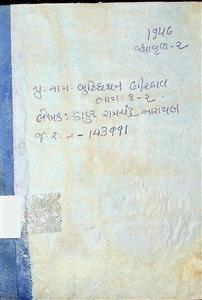 1946
આવૃત્તિ-૨
પુ. નામ: બુદ્ધિધન બીરબલ
ભાગ ૧-૨.
લેખક: ઠાકુર રામચંદ્ર નારાયણ
જ.ર.ન - 143991